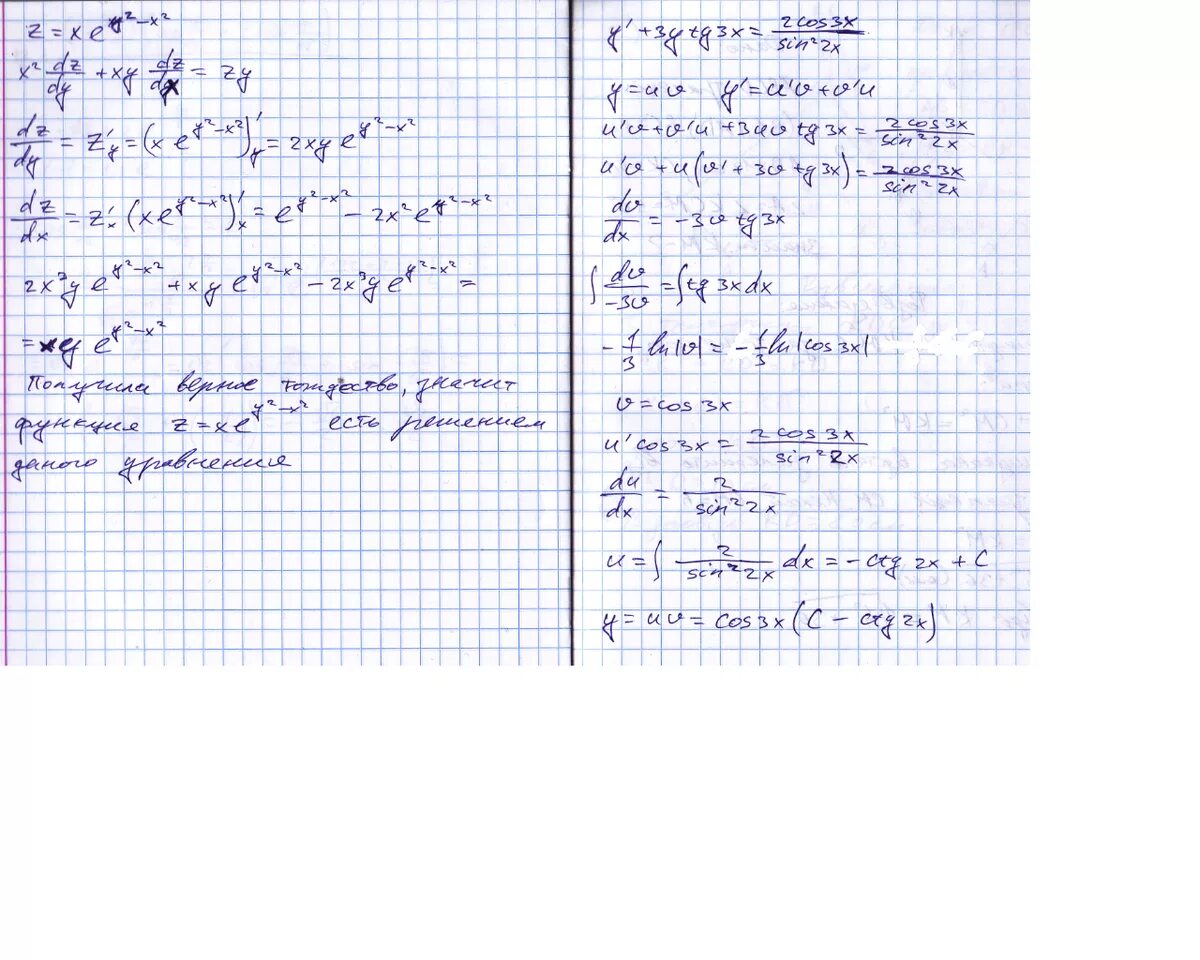 z = x e^{y²-x²}
x² dz/dy + xy dz/dx = zy
dz/dy = z'_y = (x e^{y²-x²})'_y = 2xy e^{y²-x²}
dz/dx = z'_x (x e^{y²-x²})'_x = e^{y²-x²} - 2x² e^{y²-x²}
2x³y e^{y²-x²} + xy e^{y²-x²} - 2x³y e^{y²-x²} =
= xy e^{y²-x²}
Получила верное тождество, значит
функция z = x e^{y²-x²} есть решением
даного уравнения
y' + 3y tg 3x = 2cos3x / sin²2x
y = uv y' = u'v + v'u
u'v + v'u + 3uv tg 3x = 2cos3x / sin²2x
u'v + u(v' + 3v tg 3x) = 2cos3x / sin²2x
dv/dx = -3v tg 3x
∫ dv/-3v = ∫ tg 3x dx
- 1/3 ln|v| = - 1/3 ln|cos3x|
v = cos 3x
u' cos 3x = 2cos3x / sin²2x
du/dx = 2 / sin²2x
u = ∫ 2 / sin²2x dx = -ctg 2x + C
y = uv = cos3x (C - ctg 2x)